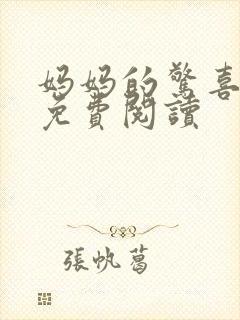 妈妈的驚喜
免費閱讀
張帆葛